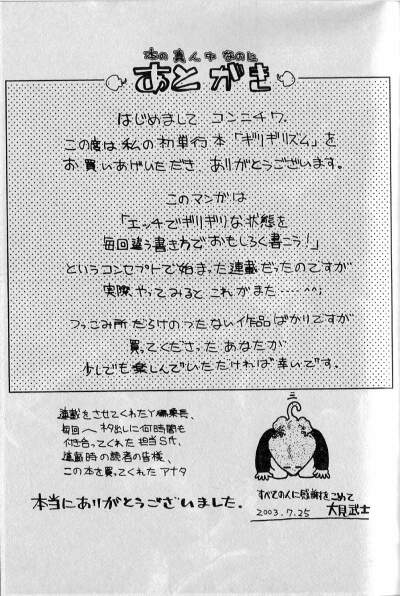 本の真ん中なのに
あとがき
はじめまして コンニチワ。
この度は私の初単行本「ギリギリズム」を
お買いあげいただき、ありがとうございます。
このマンガは
「エッチでギリギリな状態を
毎回違う書き方でおもしろく書こう!」
というコンセプトで始まった連載だったのですが
実際やってみると これがまた……^^;
つっこみ所だらけのつたない作品ばかりですが
買ってくださった あなたが
少しでも楽しんでいただければ幸いです。
連載をさせてくれたY編集長、
毎回へネタ出しに何時間も
付き合ってくれた担当S氏、
連載時の読者の皆様、
この本を買ってくれたアナタ
本当にありがとうございました。
すべての人に感謝をこめて
2003.7.25 大見武士